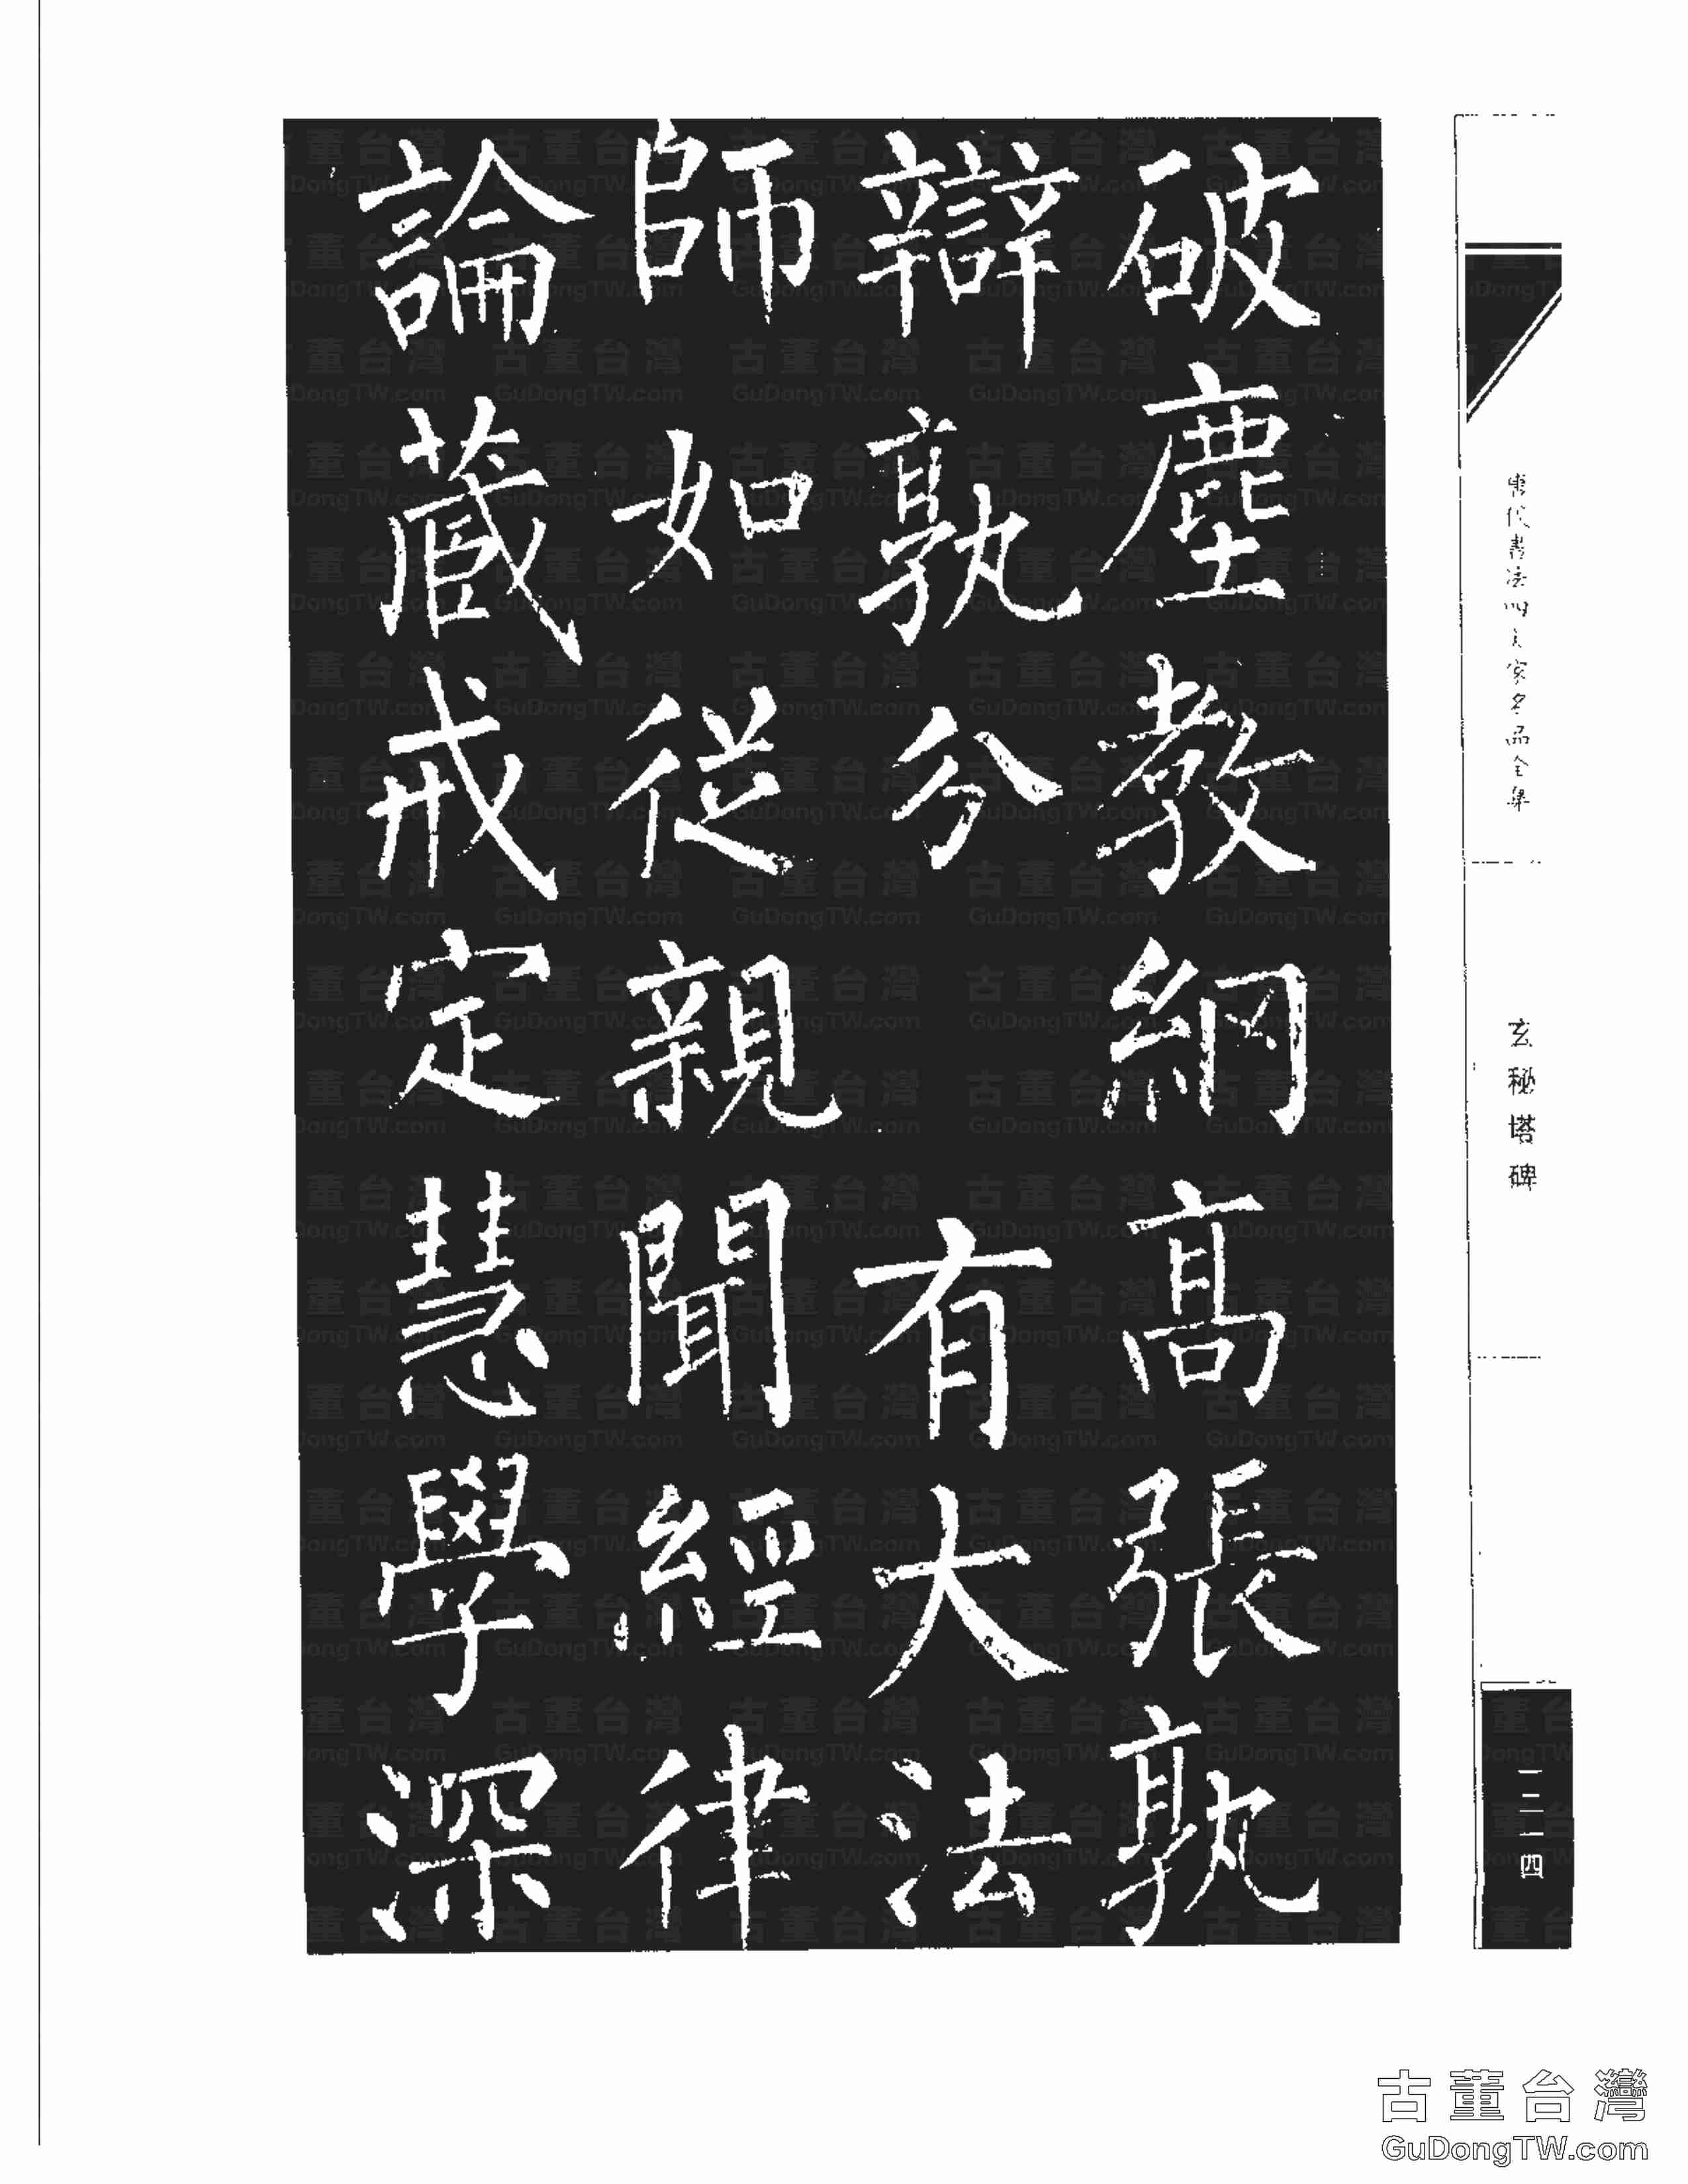 破塵教網高張孰
辯孰分 有大法
師如從親聞經律
論藏戒定慧學深
唐代書法四大家名品全集
玄秘塔碑
一二一四
古董台灣
GuDongTW.com